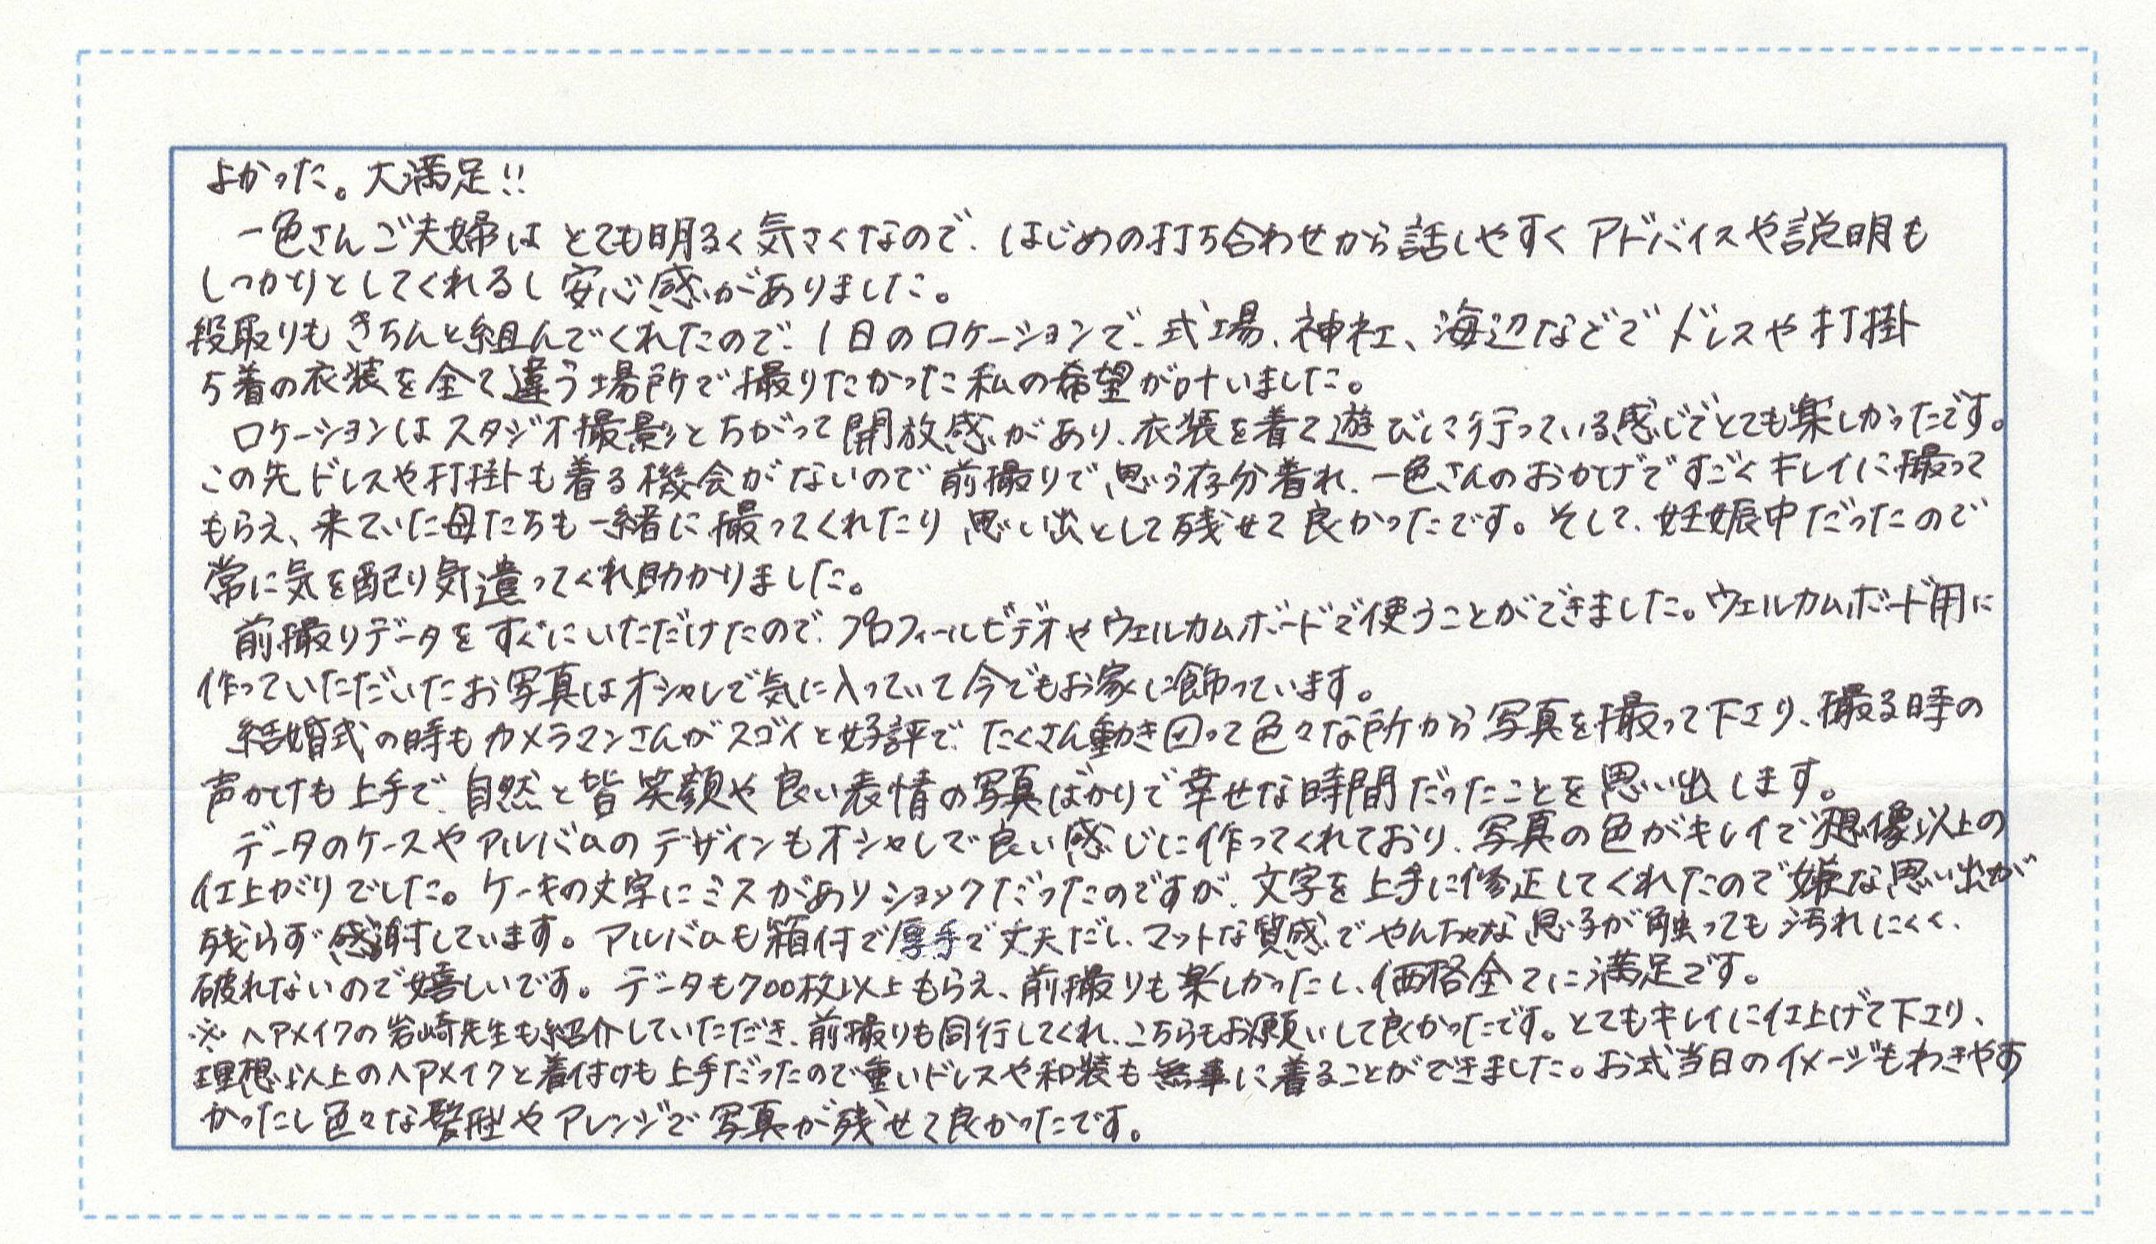 よかった。大満足!!
一色さんご夫婦は とても明るく気さくなので、はじめの打ち合わせから話しやすく アドバイスや説明も
しっかりとしてくれるし 安心感がありました。
段取りも きちんと組んでくれたので、1日のロケーションで、式場、神社、海辺などで ドレスや打掛
5着の衣装を全て違う場所で撮りたかった私の希望が叶いました。
ロケーションは スタジオ撮影とちがって 開放感があり、衣装を着て遊びに行っている感じでとても楽しかったです。
この先 ドレスや打掛も着る機会がないので前撮りで、思う存分着れ、一色さんのおかげですごくキレイに撮って
もらえ、来ていた母たちも一緒に撮ってくれたり 思い出として残せて良かったです。そして、妊娠中だったので
常に気を配り気遣ってくれ助かりました。
前撮りデータをすぐにいただけたので、プロフィールビデオやウェルカムボードで使うことができました。ウェルカムボード用に
作っていただいたお写真はオシャレで気に入っていて今でもお家に飾っています。
結婚式の時もカメラマンさんがスゴイと好評で、たくさん動き回って色々な所から写真を撮って下さり、撮る時の
声かけも上手で、自然と皆笑顔や良い表情の写真ばかりで幸せな時間だったことを思い出します。
データのケースやアルバムのデザインもオシャレで良い感じに作ってくれており、写真の色がキレイで想像以上の
仕上がりでした。ケーキの文字にミスがありショックだったのですが、文字を上手に修正してくれたので嫌な思い出が
残らず感謝しています。アルバムも箱付で厚手で丈夫だし、マットな質感でやんちゃな息子が触っても汚れにくく、
破れないので嬉しいです。データも700枚以上もらえ、前撮りも楽しかったし、価格全てに満足です。
※ヘアメイクの岩崎先生も紹介していただき、前撮りも同行してくれ、こちらもお願いして良かったです。とてもキレイに仕上げて下さり、
理想以上のヘアメイクと着付けも上手だったので重いドレスや和装も無事に着ることができました。お式当日のイメージもわきやす
かったし色々な髪型やアレンジで写真が残せて良かったです。